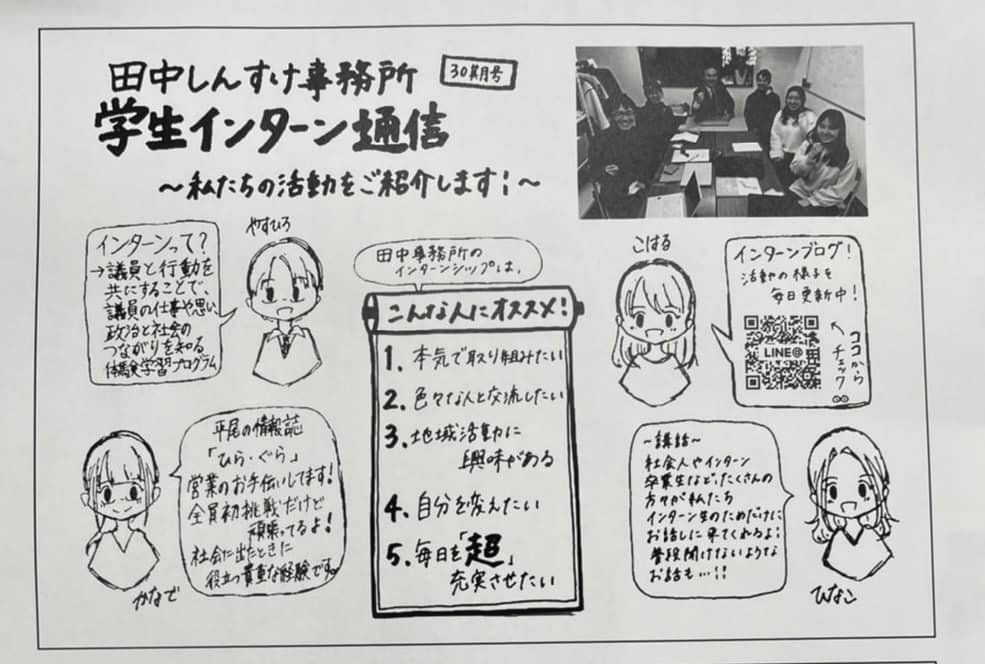 田中しんすけ事務所
30期号
学生インターン通信
～私たちの活動をご紹介します！～
やすひろ
インターンって？
→議員と行動を
共にすることで、
議員の仕事や思い、
政治と社会の
つながりを知る
体験学習プログラム
田中事務所の
インターンシップは、
こんな人にオススメ！
1. 本気で取り組みたい
2. 色々な人と交流したい
3. 地域活動に
興味がある
4. 自分を変えたい
5. 毎日を「超」
充実させたい
こはる
インターンブログ！
活動の様子を
毎日更新中！
LINE@
ココから
チェック
かなで
平尾の情報誌
「ひら・ぐら」
営業のお手伝いしてます！
全員初挑戦だけど
頑張ってるよ！
社会に出たときに
役立つ貴重な経験です。
～講話～
社会人やインターン
卒業生など、たくさんの
方々が私たち
インターン生のためだけに
お話しに来てくれるよ！
普段聞けないような
お話も…!!
ひなこ